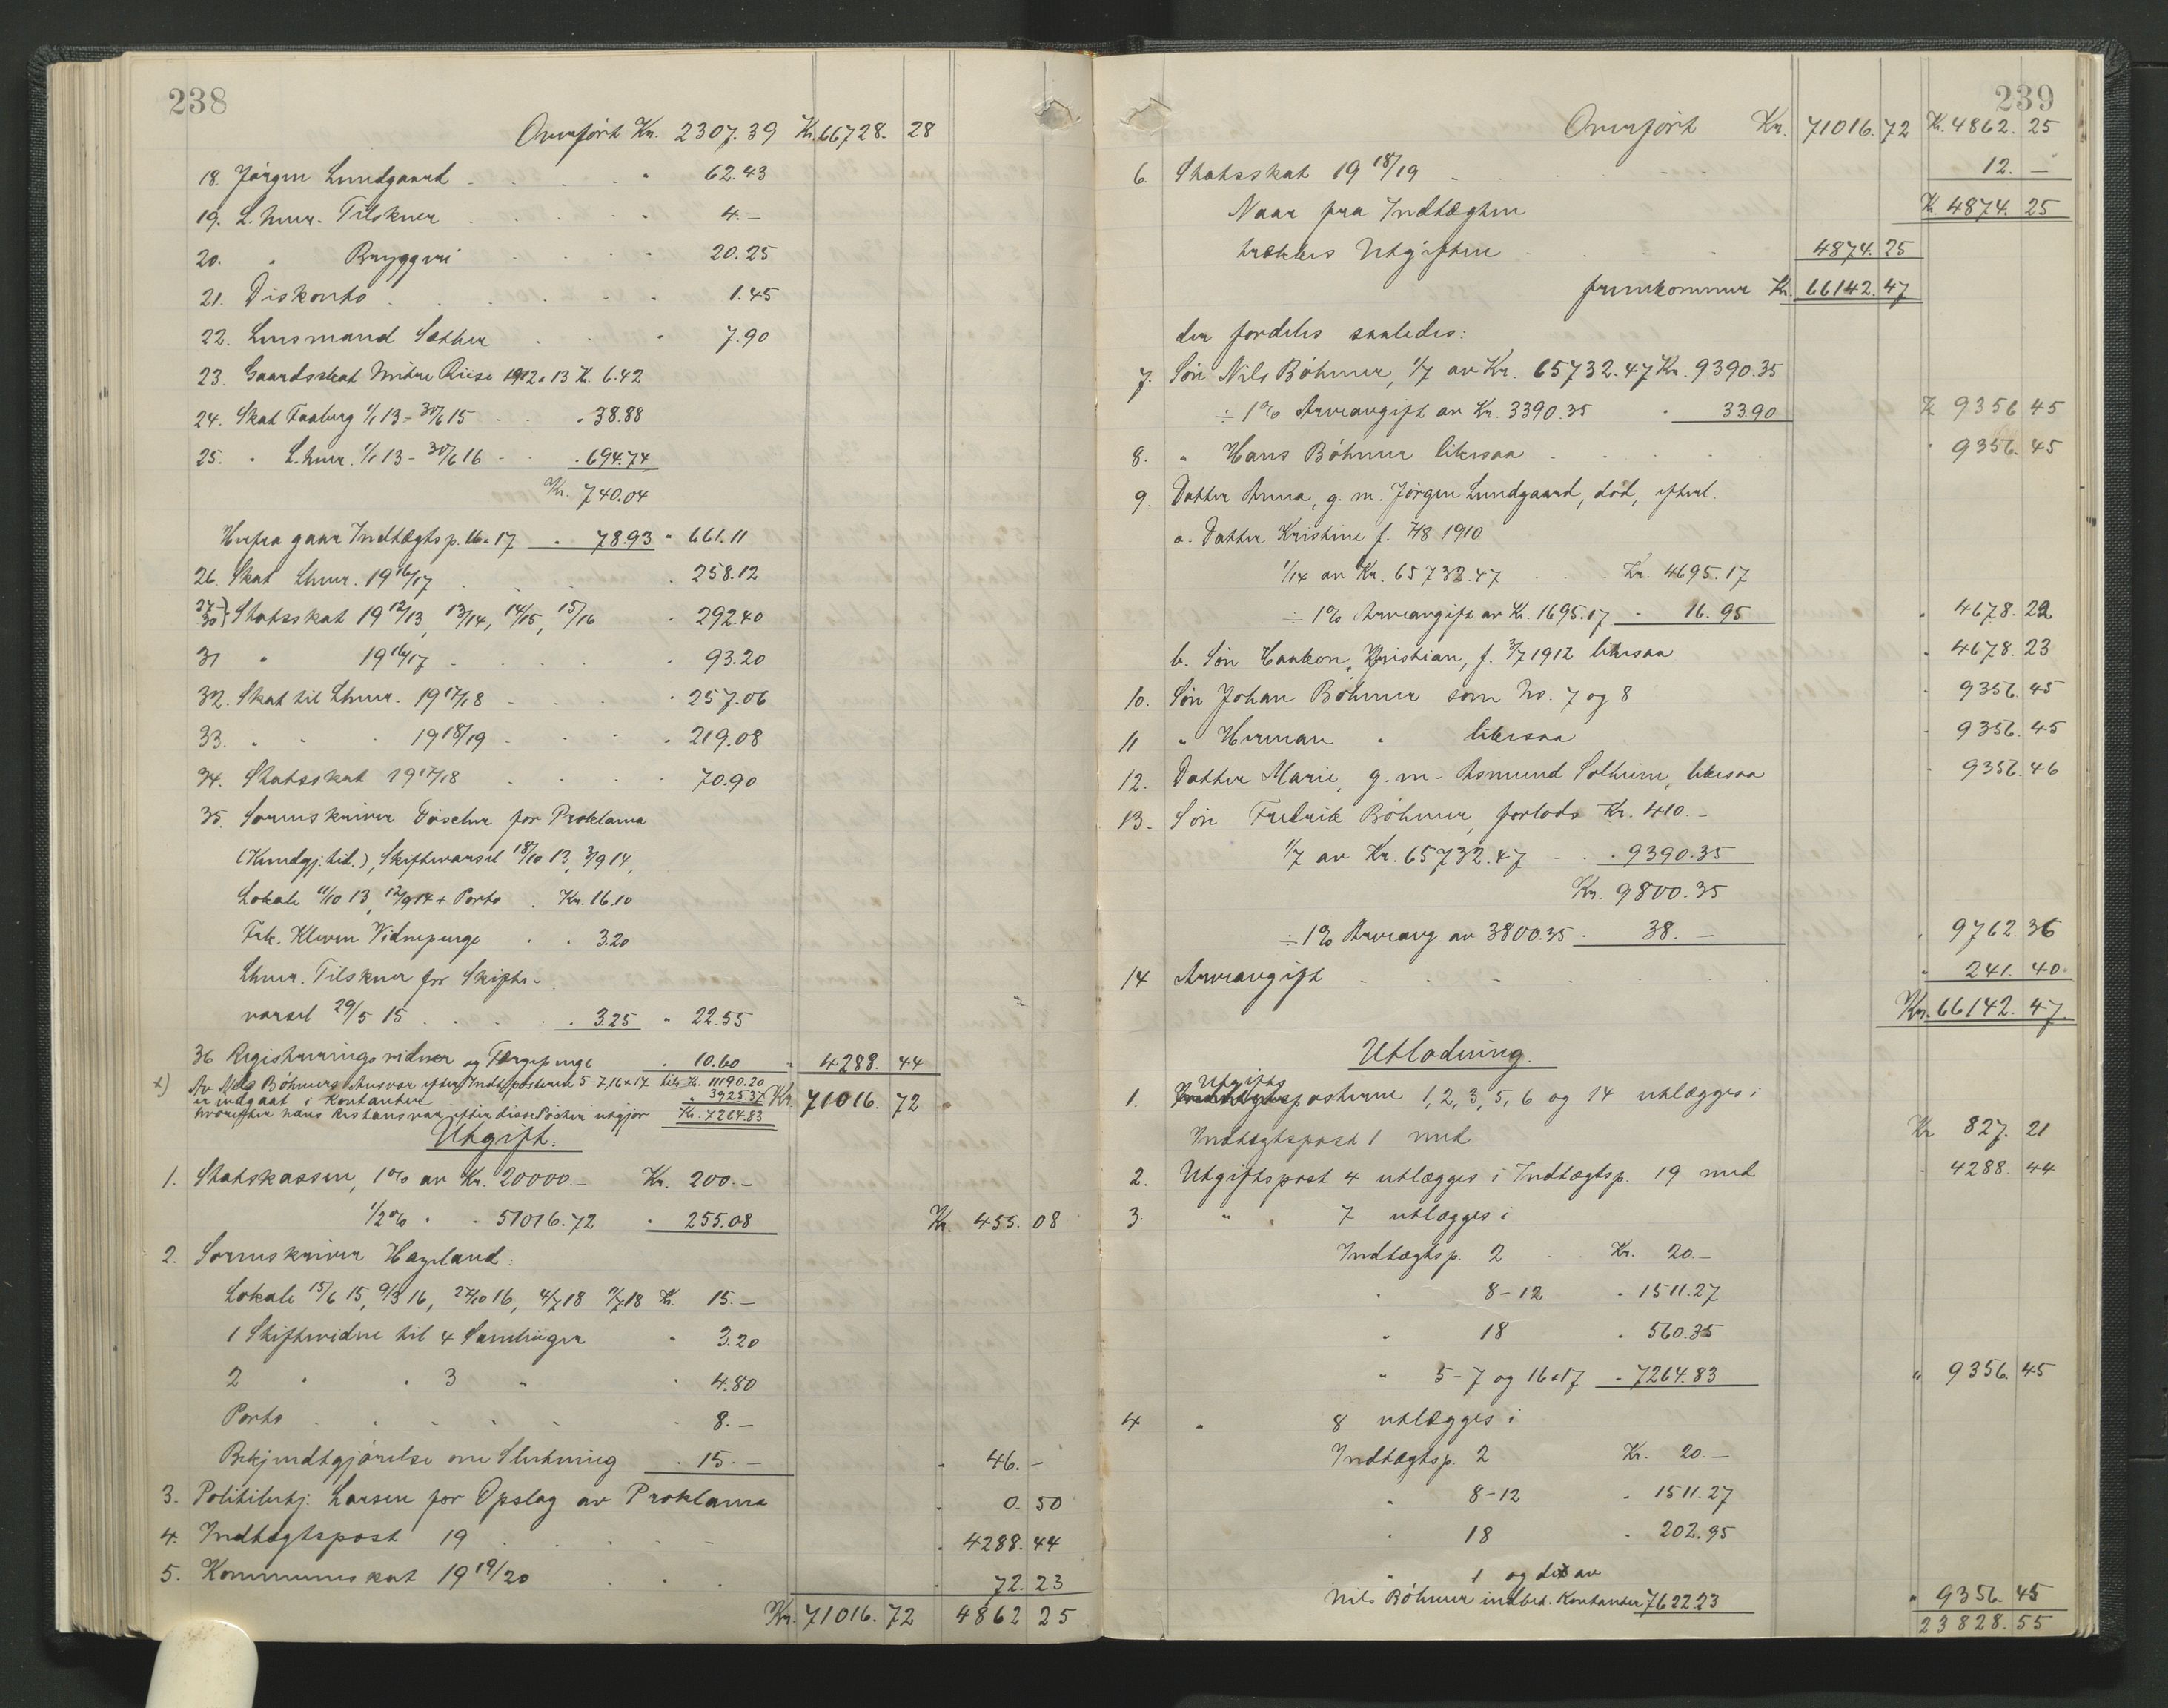 238
Overført Kr. 2307.39 Kr. 66728. 28
18. Jørgen Lundgaard 62.43
19. L.hmr. Tilskuer 4.–
20. " Bryggeri 20.25
21. Diskonto 1.45
22. Lensmand Sæther 7.90
23. Gaardsskat Nedre Riise 1912 a 13 K. 6.42
24. Skat Faaberg 1/1 13 – 30/6 15 . 38.88
25. " L.hmr. 1/1 13 – 30/6 16 – . 694.74
Kr. 740.04
Herfra gaar Indtægtsp. 16 a 17 . 78.93 " 661.11
26. Skat Lhmr. 1916/17 . 258.12
27–30} Statsskat 1912/13, 13/14, 14/15, 15/16 . 292.40
31 " 1916/17 . 93.20
32. Skat til Lhmr. 1917/18 . 257.06
33. " " 1918/19 . 219.08
34. Statsskat 1917/18 . 70.90
35. Sorenskriver Döscher for Proklama
(Kundgj.tid.), Skiftevarsel 18/10 13, 3/9 14,
Lokale 11/10 13, 12/9 14 + Porto . Kr. 16.10
Frk. Kleven Vidnepenge . . 3.20
Lhmr. Tilskuer for Skifte-
varsel 29/5 15 . . 3.25 " 22.55
36 Registreringsvidner og Færgepenge . 10.60 " 4288. 44
x) Av Nils Böhmers Ansvar efter Indtægtsposterne 5–7, 16+17 tils. Kr. 11190.20
er indgaat i Kontanter " 3925.37 Kr. 71016. 72
hvorefter hans Restansvar efter disse Poster utgjør Kr. 7264.83
Utgift.
1. Statskassen, 1% av Kr. 20000.– Kr. 200.–
1/2% " . 51016.72 . 255.08 Kr. 455. 08
2. Sorenskriver Hazeland:
Lokale 15/6 15, 9/3 16, 27/10 16, 4/7 18 7/18 K. 15.–
1 Skiftevidne til 4 Samlinger " 3.20
2 " . 3 " . 4.80
Porto . 8.–
Bekjendtgjørelse om Slutning . 15.– . 46. –
3. Politibetj. Larsen for Opslag av Proklama . 0. 50
4. Indtægtspost 19 . 4288. 44
5. Kommuneskat 1919/20 . 72. 23
Kr. 71016. 72 4862 25
239
Overført Kr. 71016. 72 K. 4862. 25
6. Statsskat 1918/19 12. –
Naar fra Indtægten K. 4874. 25
trækkes Utgiften 4874. 25
fremkommer Kr. 66142. 47
der fordeles saaledes:
7. Søn Nils Böhmer, 1/7 av Kr. 65732.47 Kr. 9390.35
÷ 1% Arveavgift av Kr. 3390.35 . 33.90 K 9356 45
8. " Hans Böhmer likesaa . 9356. 45
9. Datter Anna, g. m. Jørgen Lundgaard, død, efterl.
a. Datter Kristine f. 7/8 1910
1/14 av Kr. 65732.47 . Kr. 4695.17
÷ 1% Arveavgift av Kr. 1695.17 . 16.95 . 4678. 22
b. Søn Haakon Kristian, f. 3/7 1912 likesaa . 4678. 23
10. Søn Johan Böhmer som No. 7 og 8 . 9356. 45
11 " Herman " likesaa . 9356. 45
12. Datter Marie, g. m. Asmund Solheim, likesaa . 9356. 46
13. Søn Fredrik Böhmer, forlods Kr. 410.–
1/7 av Kr. 65732.47 – . 9390.35
Kr. 9800.35
÷ 1% Arveavg. av 3800.35 . 38.– . 9762. 36
14 Arveavgift . 241. 40
Kr. 66142. 47.
Utlodning.
1. Utgiftsposterne 1, 2, 3, 5, 6 og 14 utlægges i
Indtægtspost 1 med Kr 827. 21
2. Utgiftspost 4 utlægges i Indtægtsp. 19 med . 4288. 44
3. " . 7 utlægges i
Indtægtsp. 2 . . Kr. 20.–
" 8–12 . 1511.27
" 18 . 560.35
" 5–7 og 16 a 17 . 7264.83 " 9356. 45
4 " 8 utlægges i
Indtægtsp. 2 Kr. 20.–
" 8–12 . 1511.27
" 18 . 202.95
" 1 og det av
Nils Böhmer indbet. Kontanter 7622.23 " 9356. 45
23828. 55